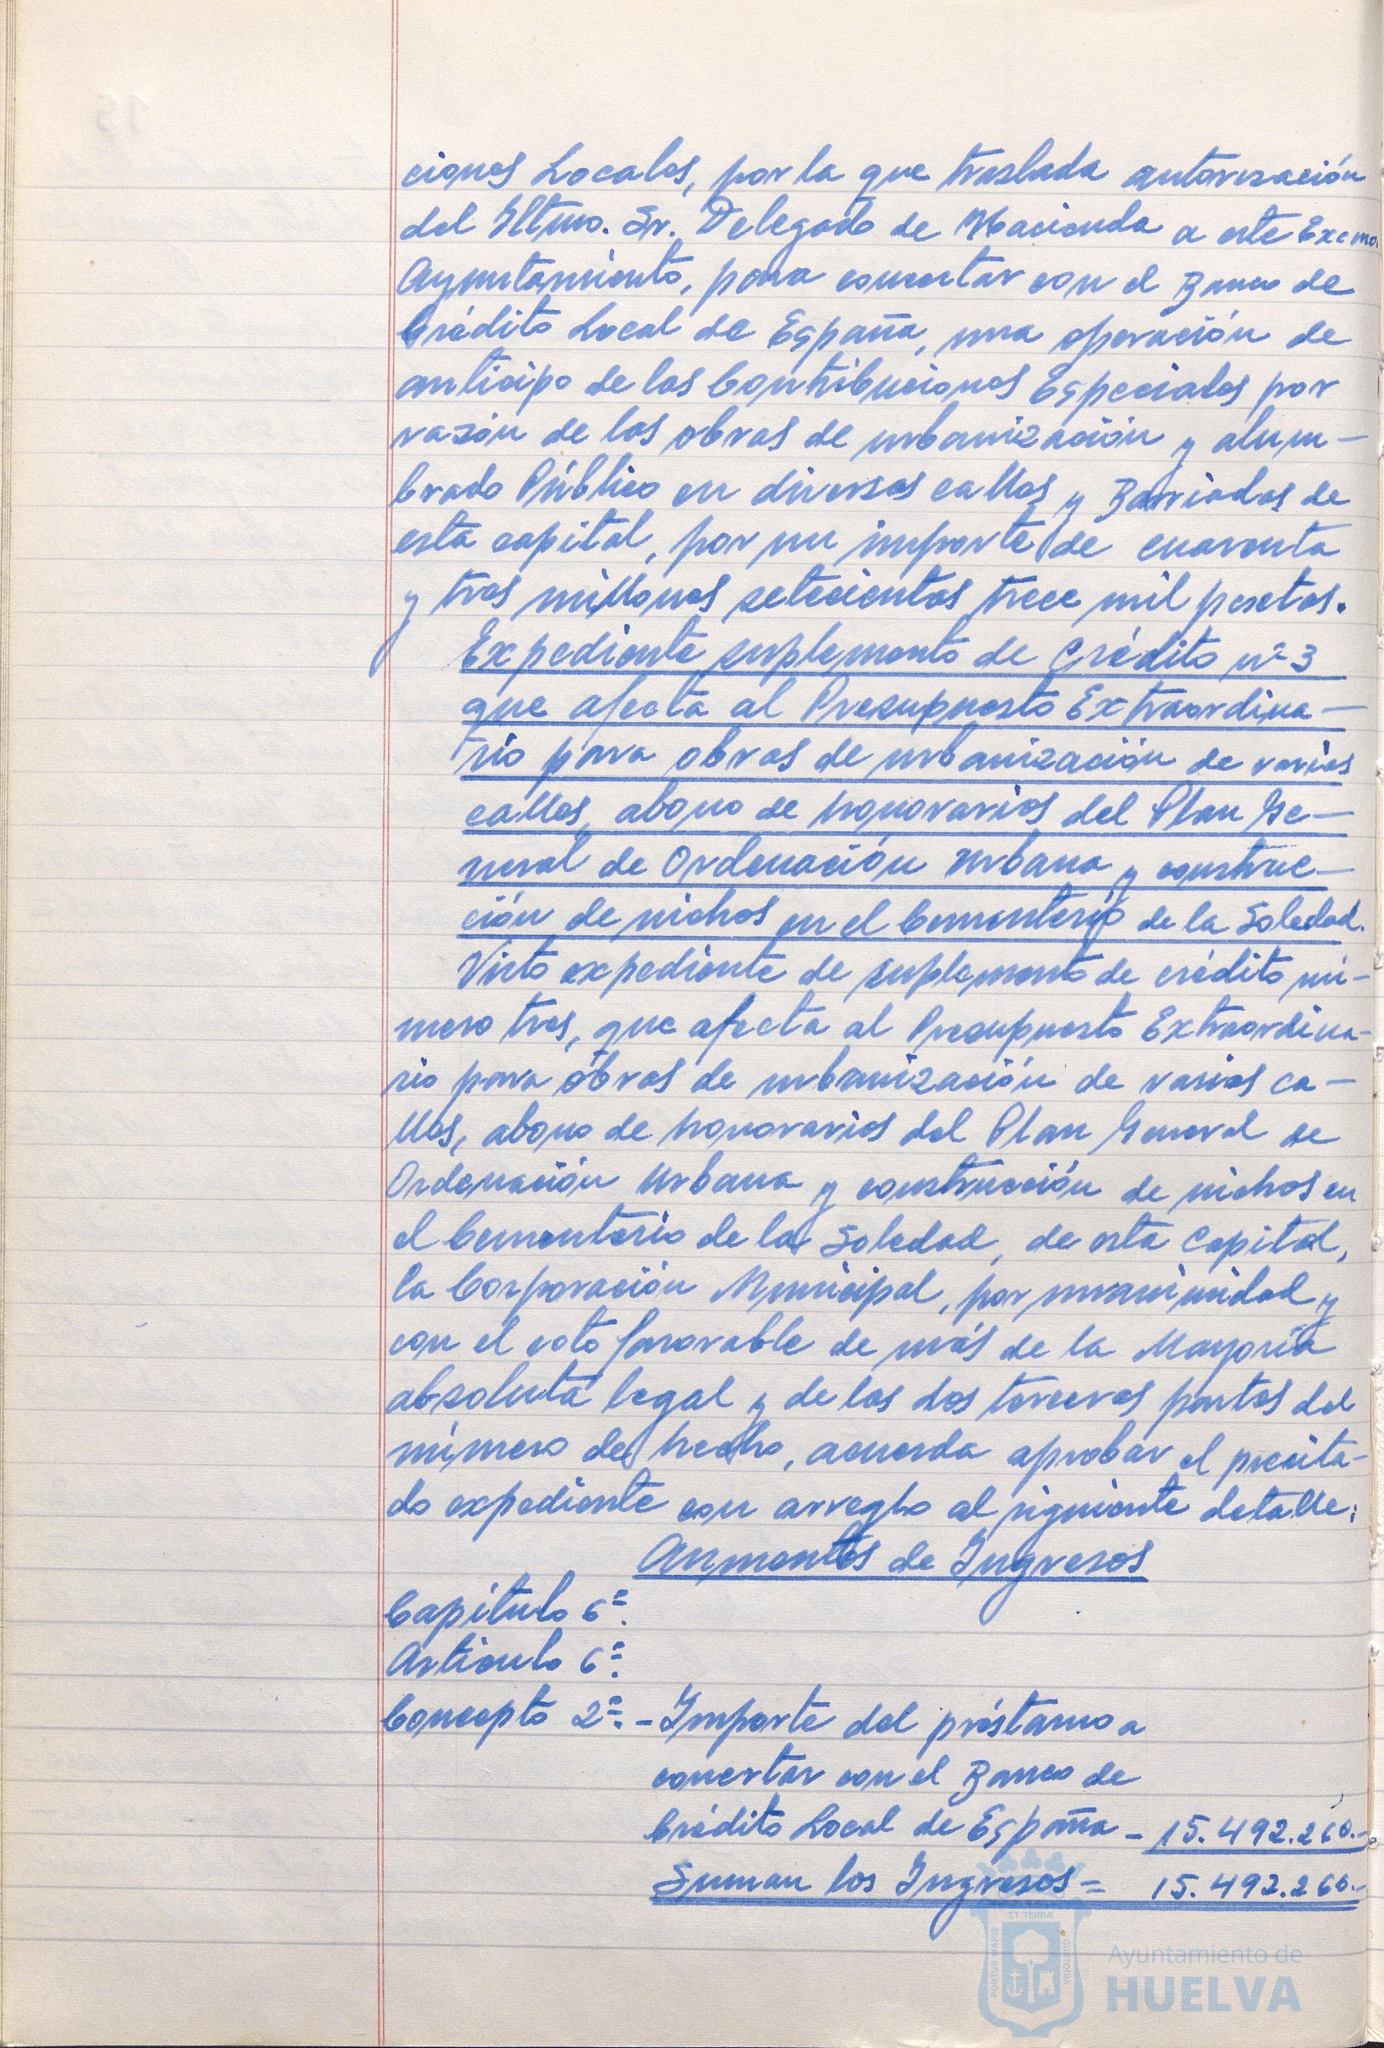 ciones Locales, por la que traslada autorización
del Iltmo. Sr. Delegado de Hacienda a este Excmo.
Ayuntamiento, para concertar con el Banco de
Crédito Local de España, una operación de
anticipo de las Contribuciones Especiales por
razón de las obras de urbanización y alum-
brado Público en diversas calles y Barriadas de
esta capital, por un importe de cuarenta
y tres millones setecientas trece mil pesetas.
Expediente suplemento de Crédito nº 3
que afecta al Presupuesto Extraordina-
rio para obras de urbanización de varias
calles, abono de honorarios del Plan Ge-
neral de Ordenación Urbana y construc-
ción de nichos en el Cementerio de la Soledad.
Visto expediente de suplemento de crédito nú-
mero tres, que afecta al Presupuesto Extraordina-
rio para obras de urbanización de varias ca-
lles, abono de honorarios del Plan General de
Ordenación Urbana y construcción de nichos en
el Cementerio de la Soledad, de esta Capital,
la Corporación Municipal, por unanimidad y
con el voto favorable de más de la Mayoría
absoluta legal y de las dos terceras partes del
número de hecho, acuerda aprobar el precita-
do expediente con arreglo al siguiente detalle:
Aumentos de Ingresos
Capítulo 6º.
Artículo 6º.
Concepto 2º. - Importe del préstamo a
concertar con el Banco de
Crédito Local de España - 15.492.260.-
Suman los Ingresos = 15.492.260.-
PORTUS MARIS ET TERRÆ CUSTODIA
Ayuntamiento de
HUELVA